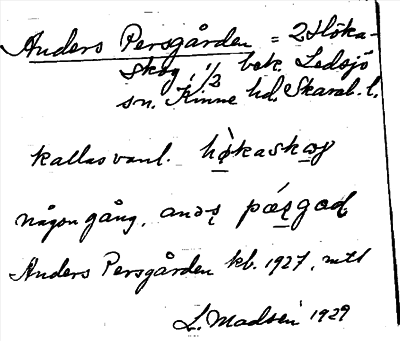 Anders Persgården = 2 Höka-
skog, 1/3 bek. Ledsjö
sn. Kinne hd. Skarab. l.
kallas vanl. hø̀kaskɔg
någon gång,
Anders Persgården kb. 1927, mtl
L. Madsén 1929